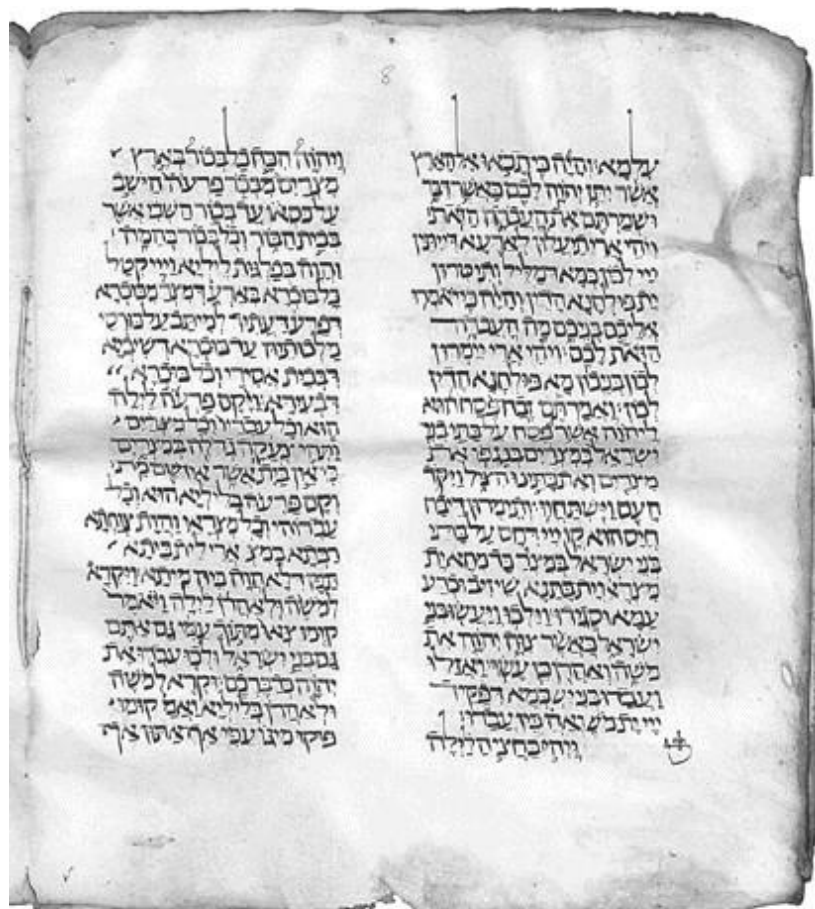 8
עלמא והיה כי תבאו אל הארץ
אשר יתן יהוה לכם כאשר דבר
ושמרתם את העבדה הזאת
ויהי ארי תעלון לארעא דייתין
ייי לכון כמא דמליל ותיטרון
ית פולחנא הדין והיה כי יאמרו
אליכם בניכם מה העבדה
הזאת לכם ויהי ארי יימרון
לכון בניכון מא פולחנא הדין
לכון ואמרתם זבח פסח הוא
ליהוה אשר פסח על בתי בני
ישראל במצרים בנגפו את
מצרים ואת בתינו הציל ויקד
העם וישתחוו ותימרון דיבח
חייס הוא קדם ייי דחס על בתי
בני ישראל במצרים כד מחא ית
מצראי וית בתנא שיזיב וכרע
עמא וסגידו וילכו ויעשו בני
ישראל כאשר צוה יהוה את
משה ואהרן כן עשו ואזלו
ועבדו בני יש כמא דפקיד
ייי ית משה ואה כין עבדו
ויהי בחצי הלילה
ויהוה הכה כל בכור בארץ
מצרים מבכר פרעה הישב
על כסאו עד בכור השבי אשר
בבית הבור וכל בכור בהמה
והוה בפלגות ליליא וייי קטל
כל בוכרא בארעא דמצרים מבוכרא
דפרעה דעתיד למיתב על כורסי
מלכותיה עד בוכרא דשיביא
דבבית אסירי וכל בוכרא
דבעירא ויקם פרעה לילה
הוא וכל עבדיו וכל מצרים
ותהי צעקה גדלה במצרים
כי אין בית אשר אין שם מת
וקם פרעה בליליא הוא וכל
עבדוהי וכל מצראי והות צוחתא
רבתא במצ ארי לית ביתא
תמן דלא הוה ביה מיתא ויקרא
למשה ולאהרן לילה ויאמר
קומו צאו מתוך עמי גם אתם
גם בני ישראל ולכו עבדו את
יהוה כדברכם וקרא למשה
ולאהרן בליליא ואמ קומו
פוקו מיגו עמי אף אתון אף